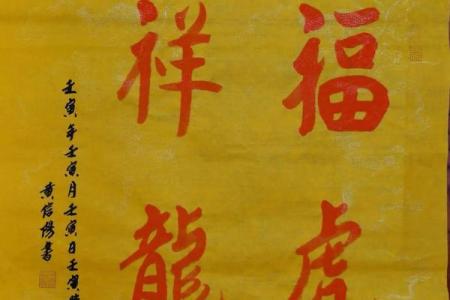 福虎
祥龍
壬寅年壬寅月壬寅日壬寅
黄信陽書